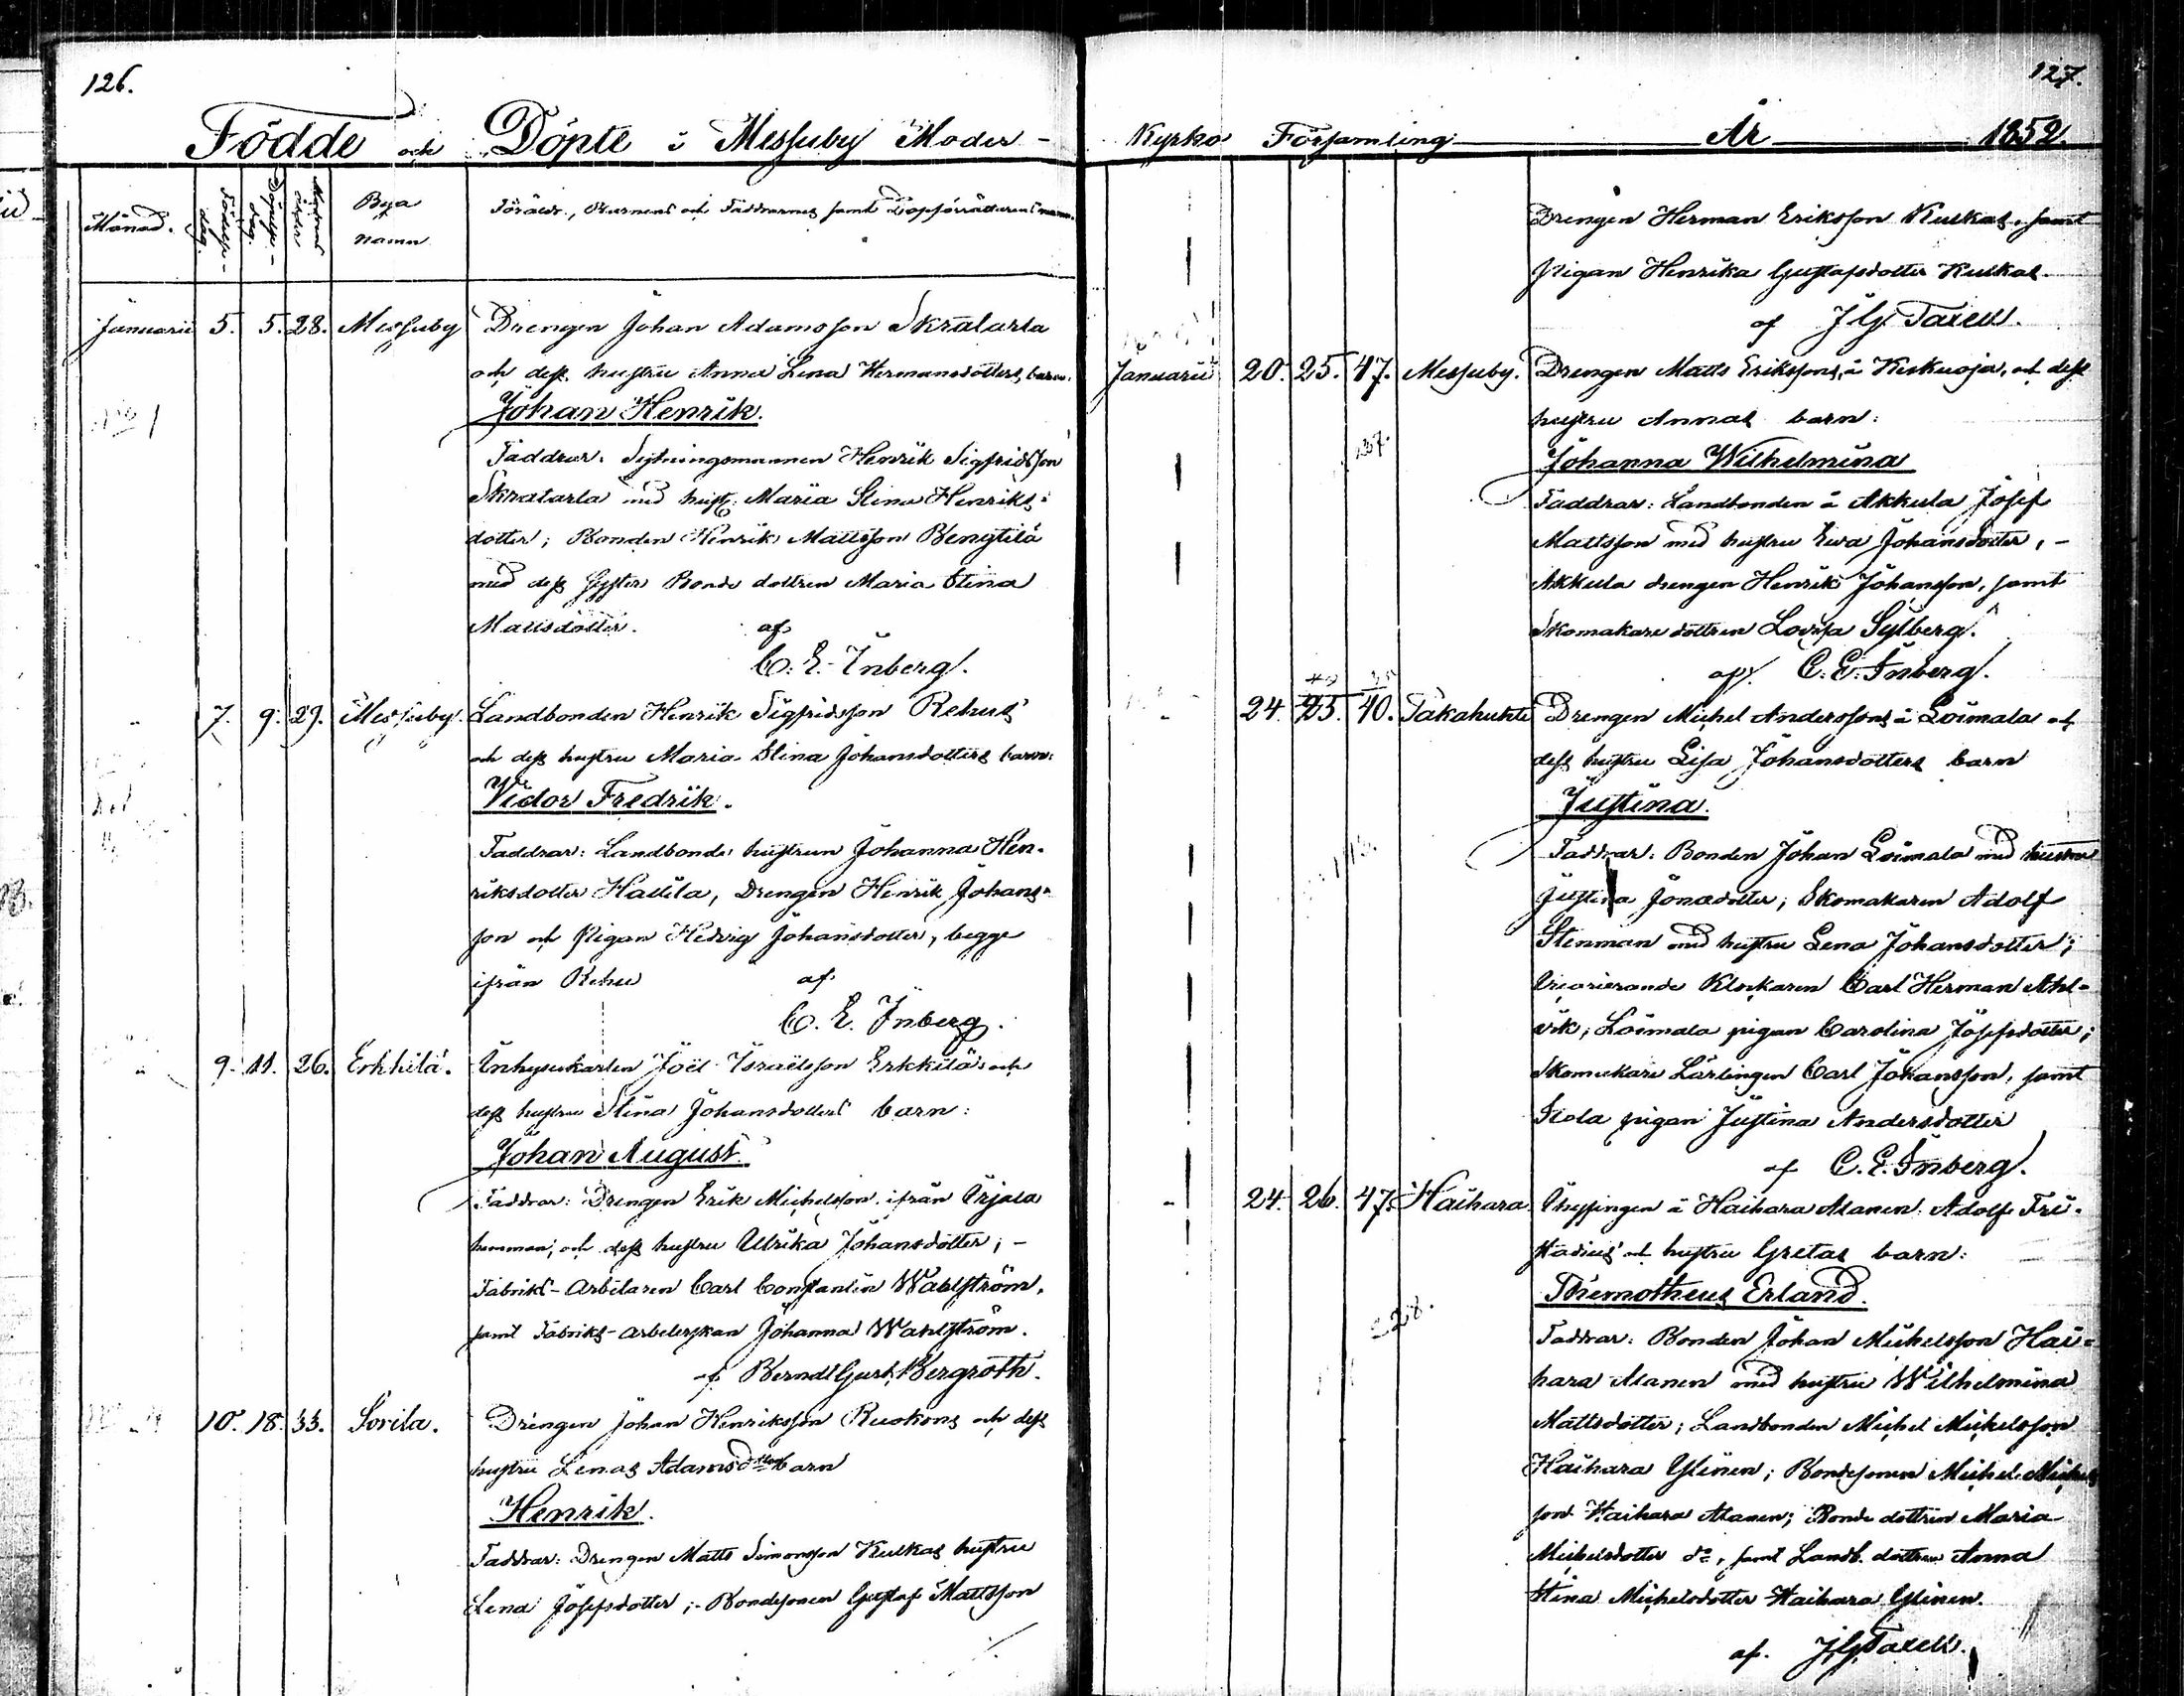 126.
Födde och Döpte i Messuby Moder-
Månad. Födelse-dag. Döpelse-dag. Modrens ålder Bya namn Föräldr., Barnens och Faddrarnes samt Dopförrättarens namn.
Januarii 5. 5. 28. Messuby Drengen Johan Adamsson Skratarla
och dess hustru Anna Lena Hermansdotters barn.
Johan Henrik.
Faddrar: Sytningsmannen Henrik Sigfridsson
Skratarla med hust: Maria Stina Henriks-
dotter; Bonden Henrik Mattsson Bengtilä
med dess syster Bonde dottren Maria Stina
Mattsdotter. af
C. E. Inberg.
" 7. 9. 29. Messuby. Landbonden Henrik Sigfridsson Rehus
och dess hustru Maria Stina Johansdotters barn:
Victor Fredrik.
Faddrar: Landbonde hustrun Johanna Hen-
riksdotter Hattila, Drengen Henrik Johans-
son och Pigan Hedvig Johansdotter, begge
ifrån Rehu af
C. E. Inberg.
" 9. 11. 26. Erkkilä. Inhysekarlen Joël Israëlsson Erkkilä och
dess hustru Stina Johansdotters barn:
Johan August.
Faddrar: Drengen Erik Michelsson ifrån Urjala
hemman, och dess hustru Ulrika Johansdotter; -
Fabriks-Arbetaren Carl Constantin Wahlström,
samt Fabriks-arbeterskan Johanna Wahlström.
af Berndt Gust. Bergroth.
10. 18. 33. Sorila. Drengen Johan Henriksson Ruokons och dess
hustru Lenas Adamsd:ters barn
Henrik.
Faddrar: Drengen Matts Simonsson Kulkas hustru
Lena Josefsdotter; - Bondesonen Gustaf Mattsson
127.
Kyrko Församling År 1852.
Drengen Herman Eriksson Kulkas, samt
Pigan Henrika Gustafsdotter Kulkas.
af J. G. Taxell.
Januarii 20. 25. 47. Messuby. Drengen Matts Erikssons å Keskuoja, och dess
hustru Annas barn:
Johanna Wilhelmina
Faddrar: Landbonden å Akkula Josef
Mattsson med hustru Ewa Johansdotter, -
Akkula drengen Henrik Johansson, samt
Skomakare dottren Lovisa Sylberg.
af. C. E. Inberg.
" 24. 25. 40. Takahuhti Drengen Michel Anderssons å Loimala och
dess hustru Lisa Johansdotters barn
Justina.
Faddrar: Bonden Johan Loimala med hustru
Justina Jonædotter; Skomakaren Adolf
Stenman med hustru Lena Johansdotter;
Vicarierande Klockaren Carl Herman Ahl-
vik; Loimala pigan Carolina Josefsdotter;
Skomakare Lärlingen Carl Johansson, samt
pigan Justina Andersdotter
af C. E. Inberg.
" 24. 26. 47. Haihara Inhysingen å Haihara Alanen Adolf Fri-
stadius' och hustru Gretas barn:
Thimotheus Erland.
Faddrar: Bonden Johan Michelsson Hai-
hara Alanen med hustru Wilhelmina
Mattsdotter; Landbonden Michel Mickelsson
Haihara Ylinen; Bondesonen Michel Michels
son Haihara Alanen; Bonde dottren Maria
Michelsdotter do, samt Landb. dottren Anna
Stina Michelsdotter Haihara Ylinen.
af. J. G. Taxell.